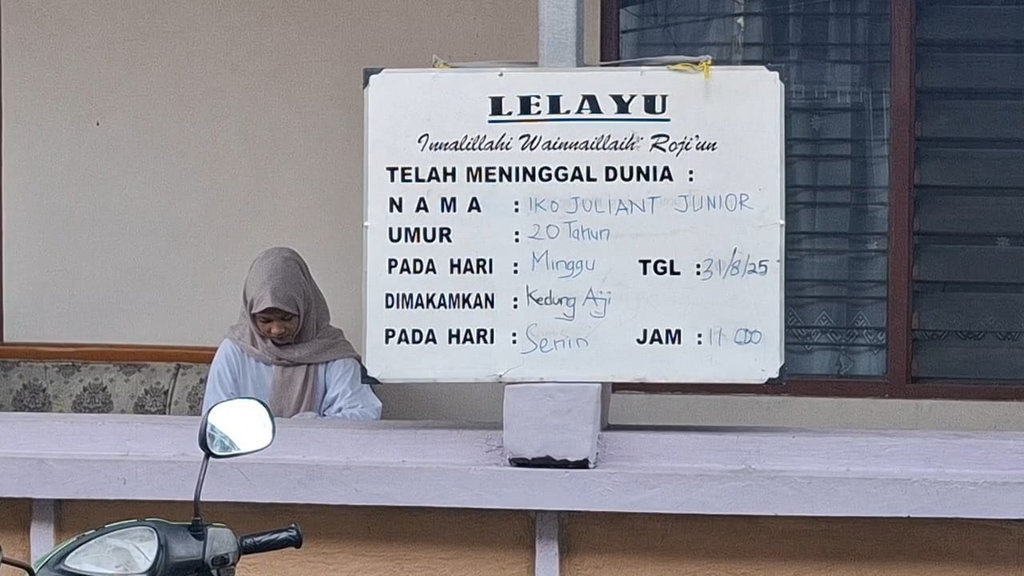 LELAYU
Innalillahi Wainnaillaih Roji'un
TELAH MENINGGAL DUNIA :
NAMA : IKO JULIANT JUNIOR
UMUR : 20 Tahun
PADA HARI : Minggu TGL : 31/8/25
DIMAKAMKAN : Kedung Aji
PADA HARI : Senin JAM : 11 00